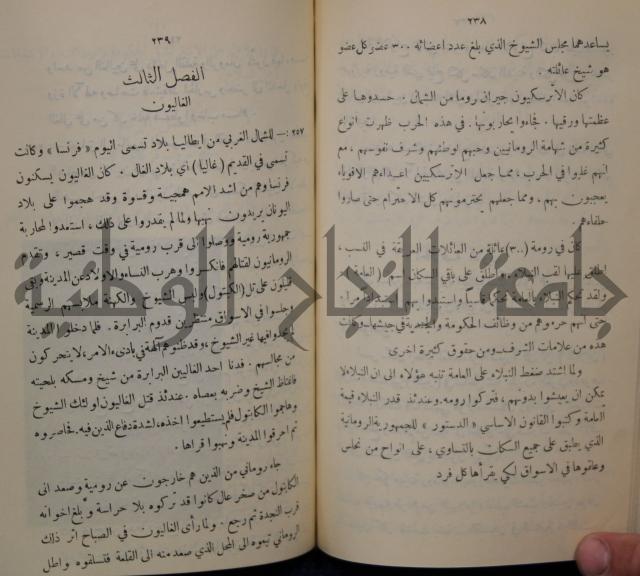 ٢٣٨
يساعدهما مجلس الشيوخ الذي بلغ عدد اعضائه ٣٠٠ عضو كل عضو
هو شيخ عائلته .
كان الأترسكيون جيران روما من الشمال . حسدوها على
عظمتها ورقيها . فجاءوا يحاربونها . في هذه الحرب ظهرت انواع
كثيرة من شهامة الرومانيين وحبهم لوطنهم وشرف نفوسهم ، مع
انهم غلبوا في الحرب ، مما جعل الأترسكيين اعداءهم الاقوياء
يعجبون بهم ، ومما جعلهم يحترمونهم كل الاحترام حتى صاروا
حلفاءهم .
كان في رومة (٣٠٠) عائلة من العائلات العريقة في النسب ،
اطلق عليها لقب النبلاء . واطلق على باقي السكان اسم ( العامة )
ولقد تحكم النبلاء بالعامة تحكماً قاسياً واستبدوا بهم
حتى انهم حرموهم من وظائف الحكومة والجندية في جيشها . وكانت
هذه من علامات الشرف . ومن حقوق كثيرة اخرى
ولما اشتد ضغط النبلاء على العامة تنبه هؤلاء الى ان النبلاء لا
يمكن ان يعيشوا بدونهم ، فتركوا رومه . وعندئذ قدر النبلاء قيمة
العامة وكتبوا القانون الاساسي « الدستور » للجمهورية الرومانية
الذي يطبق على جميع السكان بالتساوي ، على انواح من نحاس
وعلقوها في الاسواق لكي يقرأها كل فرد
٢٣٩
الفصل الثالث
الغاليون
٢٥٧ :— للشمال الغربي من ايطاليا بلاد تسمى اليوم « فرنسا » وكانت
تسمى في القديم ( غاليا ) اي بلاد الغال . كان الغاليون يسكنون
فرنسا وهم من اشد الامم همجية وقسوة وقد هجموا على بلاد
اليونان يريدون نهبها ولما لم يقدروا على ذلك ، استعدوا لمحاربة
جمهورية رومية ووصلوا الى قرب رومية في وقت قصير ، وتقدم
الرومانيون لقتالهم فانكسروا وهرب النساء والاولاد عن المدينة وبقي
قليلون على تل ( الكبتول ) ولبس الشيوخ والكهنة ملابسهم الرسمية
وجلسوا في الاسواق منتظرين قدوم البرابرة . فلما دخلوا المدينة
لم يجدوا فيها غير الشيوخ ، وقد ظنوهم آلهة في بادىء الامر ، لا يتحركون
من مجالسهم . فدنا احد الغاليين البرابرة من شيخ ومسكه بلحيته
فاغتاظ الشيخ وضربه بعصاه . عندئذ قتل الغاليون اولئك الشيوخ
وهاجموا الكابتول فلم يستطيعوا اخذه ، لشدة دفاع الذين فيه . فحاصروه
ثم احرقوا المدينة ونهبوا قراها .
جاء روماني من الذين هم خارجون عن رومية وصعد الى
الكابتول من صخر عال كانوا قد تركوه بلا حراسة وبلغ اخوانه
قرب النجدة ثم رجع . ولما رأى الغاليون في الصباح اثر ذلك
الروماني تبعوه الى المحل الذي صعد منه الى القلعة فتسلقوه واطل
جامعة النجاح الوطنية